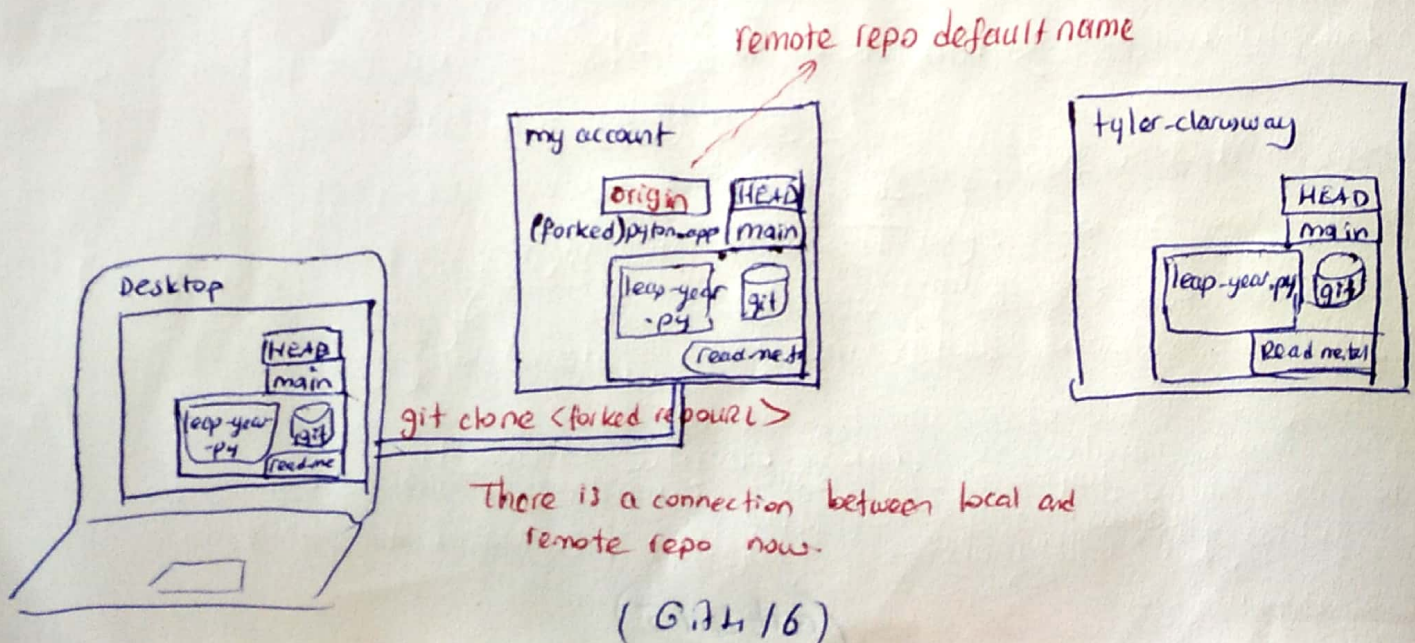 remote repo default name
my account
origin
HEAD
(forked) pyton-app
main
leap-year
-py
git
readme.t
tyler-clarusway
HEAD
main
leap-year.py
git
Readme.txt
Desktop
HEAD
main
leap-year
-py
git
readme
git clone <forked repoURL>
There is a connection between local and
remote repo now.